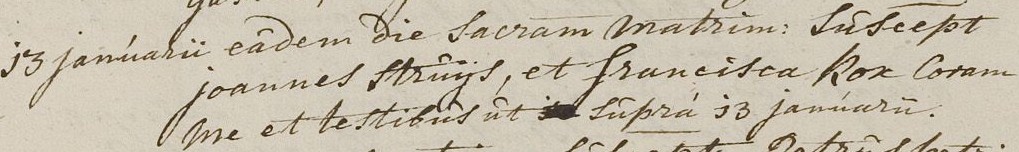 13 januarii eâdem die sacram matrim: suscept
joannes struijs, et francisca kox Coram
me et testibus ut suprá 13 januarii.